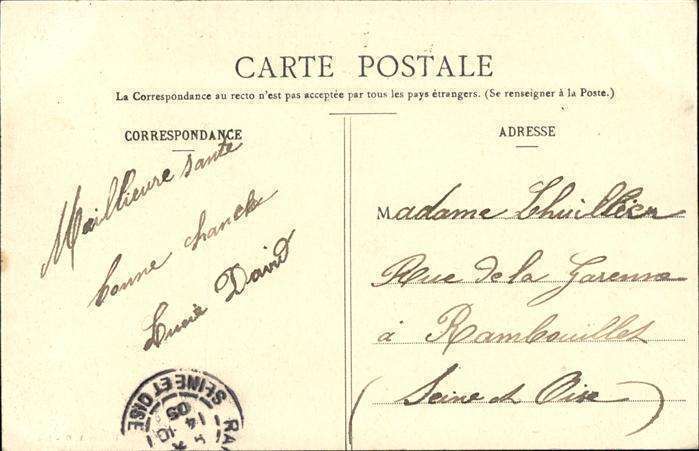 CARTE POSTALE
La Correspondance au recto n'est pas acceptée par tous les pays étrangers. (Se renseigner à la Poste.)
CORRESPONDANCE
Meillieure santé
bonne chance
Lucie David
ADRESSE
Madame Lhuillier
Rue de la Garenne
à Rambouillet
(Seine et Oise)
SEINE ET OISE
14
05